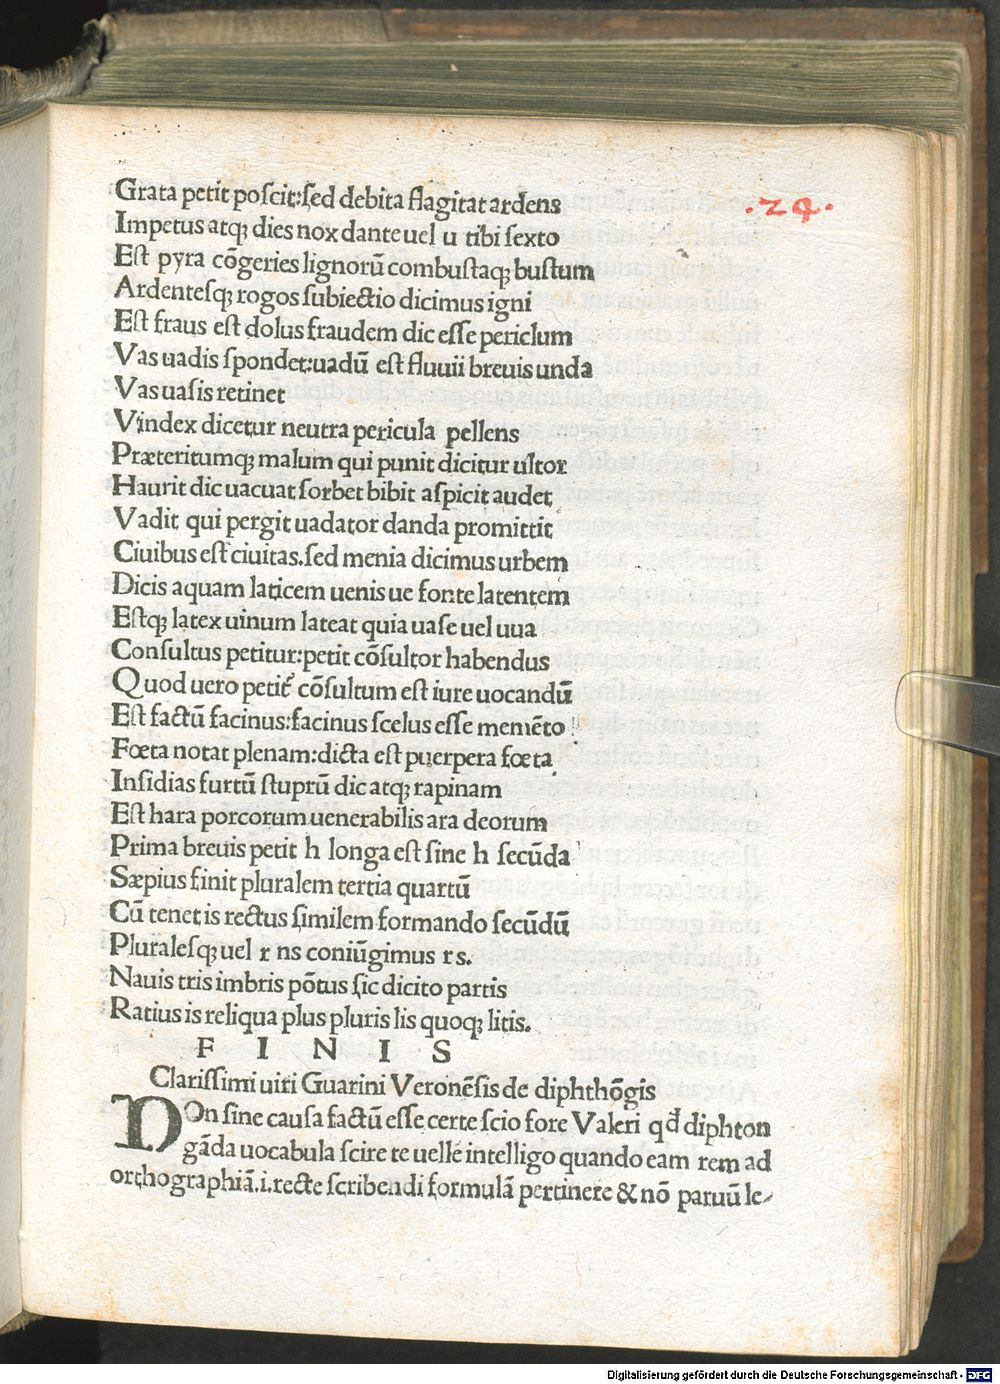 Grata petit poſcit:ſed debita flagitat ardens
.24.
Impetus atqꝫ dies nox dante uel u tibi ſexto
Eſt pyra cõgeries lignorũ combuſtaqꝫ buſtum
Ardentesqꝫ rogos ſubiectio dicimus igni
Eſt fraus eſt dolus fraudem dic eſſe periclum
Vas uadis ſpondet:uadũ eſt fluuii breuis unda
Vas uaſis retinet
Vindex dicetur neutra pericula pellens
Præteritumqꝫ malum qui punit dicitur ultor
Haurit dic uacuat ſorbet bibit aſpicit audet
Vadit qui pergit uadator danda promittit
Ciuibus eſt ciuitas.ſed menia dicimus urbem
Dicis aquam laticem uenis ue fonte latentem
Eſtqꝫ latex uinum lateat quia uaſe uel uua
Conſultus petitur:petit cõſultor habendus
Quod uero petit᷑ cõſultum eſt iure uocandũ
Eſt factũ facinus:facinus ſcelus eſſe memẽto
Fœta notat plenam:dicta eſt puerpera fœta
Inſidias furtũ ſtuprũ dic atqꝫ rapinam
Eſt hara porcorum uenerabilis ara deorum
Prima breuis petit h longa eſt ſine h ſecũda
Sæpius finit pluralem tertia quartũ
Cũ tenet is rectus ſimilem formando ſecũdũ
Pluralesqꝫ uel r ns coniũgimus r s.
Nauis tris imbris põtus ſic dicito partis
Ratius is reliqua plus pluris lis quoqꝫ litis.
F I N I S
Clariſſimi uiri Guarini Veronẽſis de diphthõgis
NOn ſine cauſa factũ eſſe certe ſcio fore Valeri qđ diphton
gãda uocabula ſcire te uelle intelligo quando eam rem ad
orthographiã.i.recte ſcribendi formulã pertinere & nõ paruũ le⸗
Digitalisierung gefördert durch die Deutsche Forschungsgemeinschaft - DFG